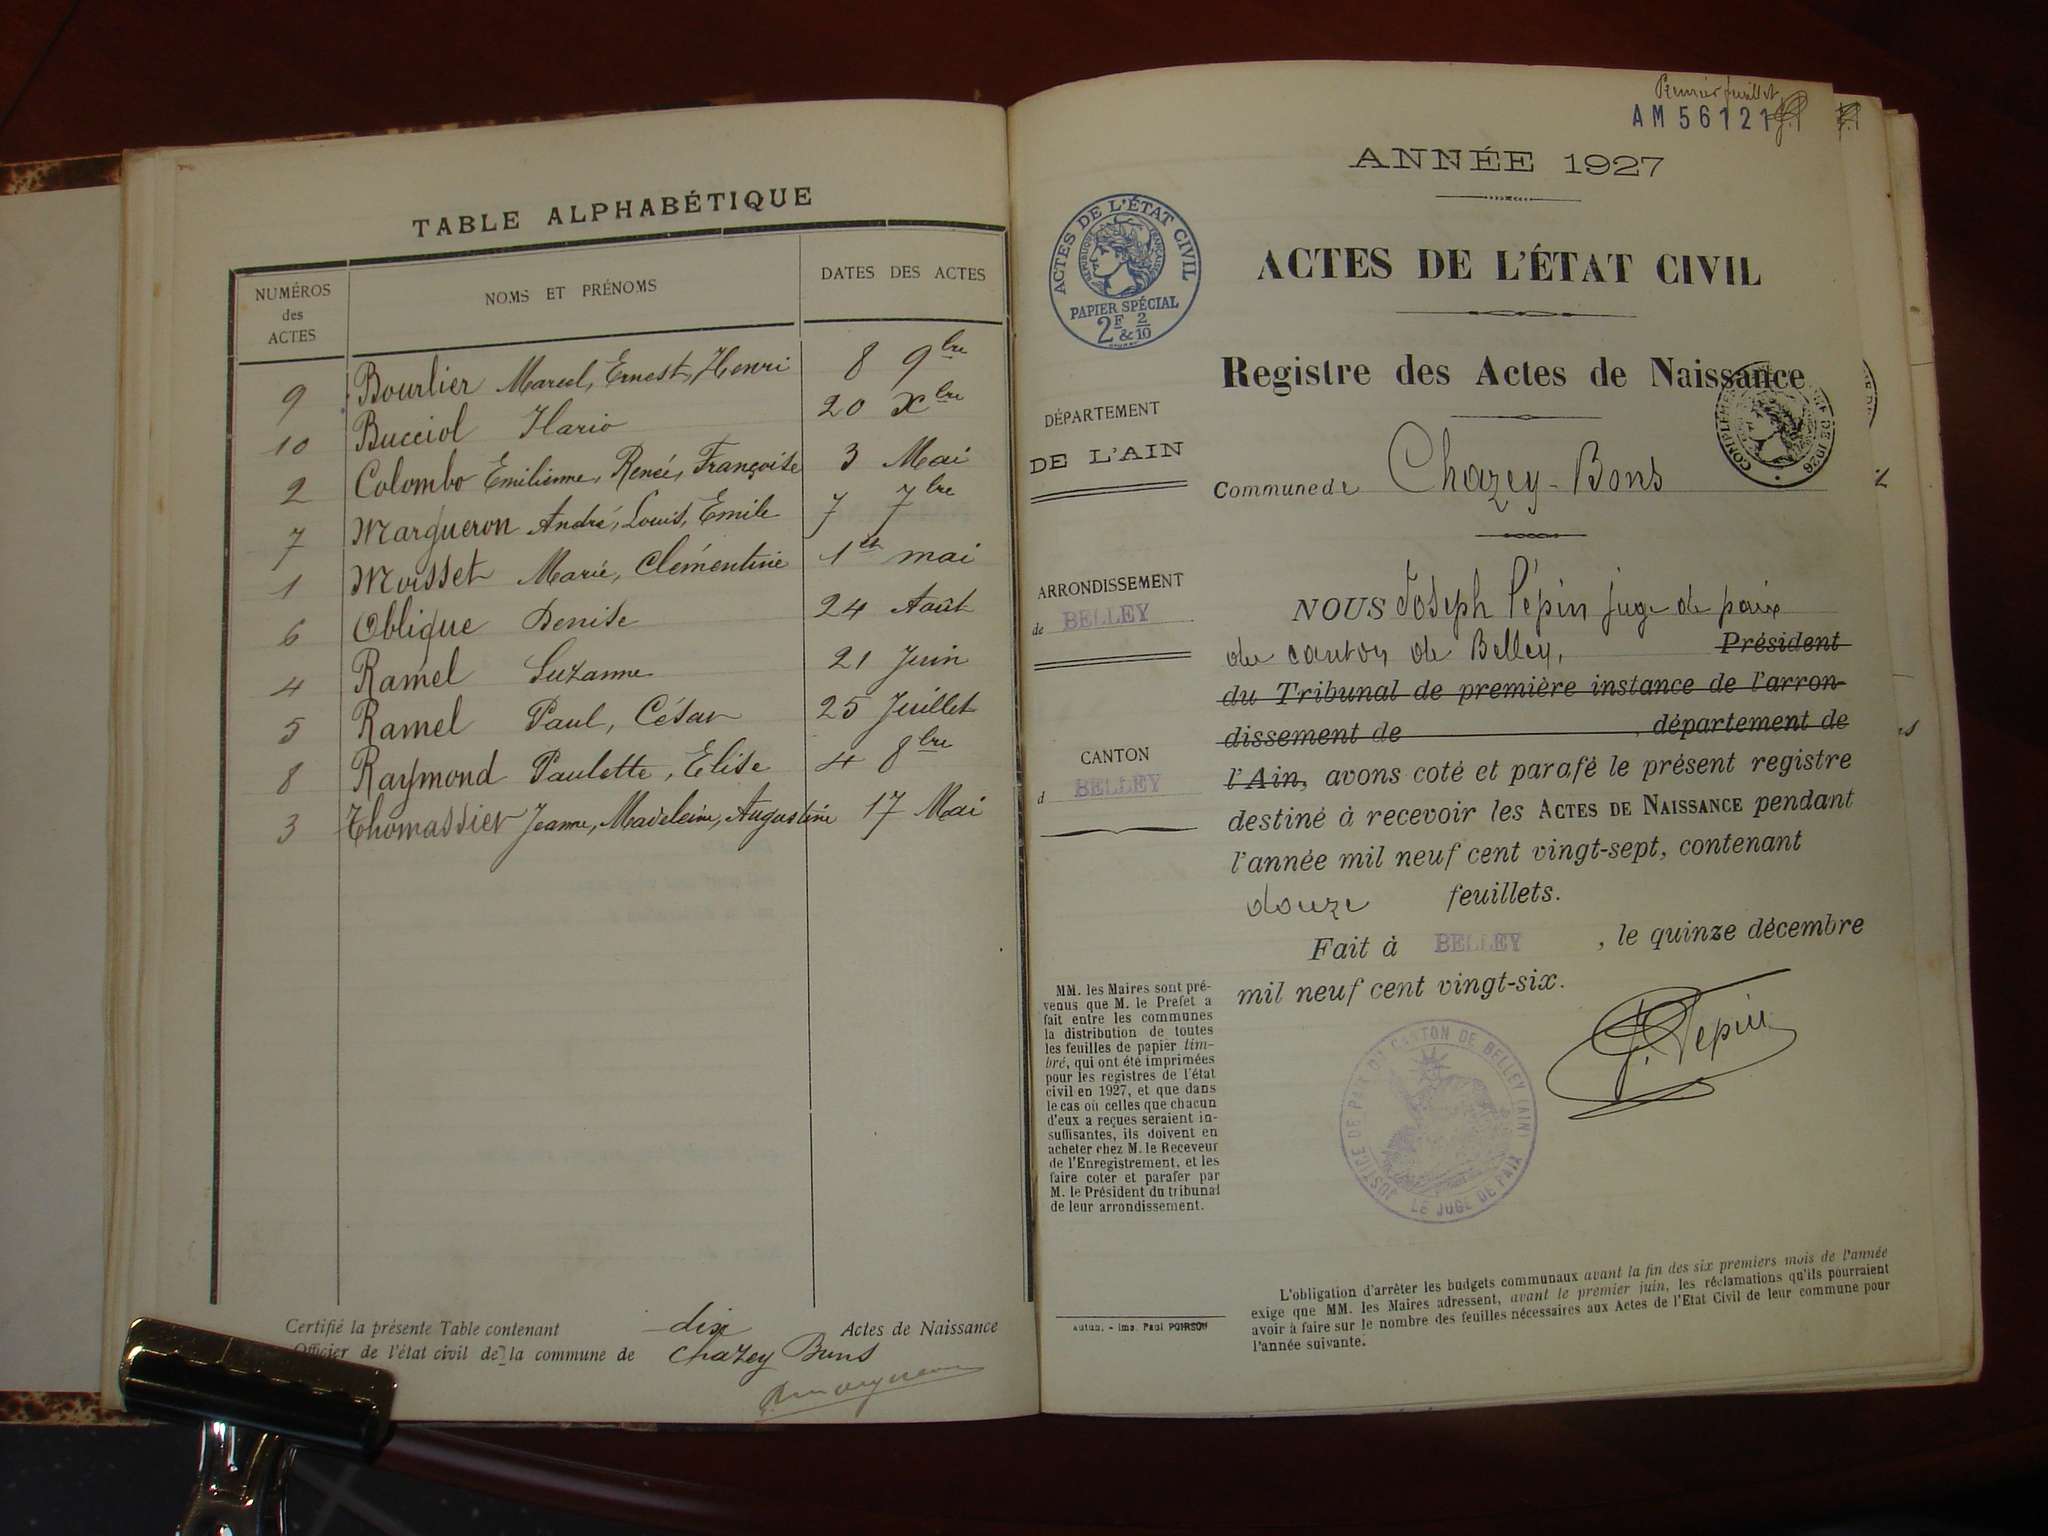 TABLE ALPHABÉTIQUE
NUMÉROS des ACTES
NOMS ET PRÉNOMS
DATES DES ACTES
9 Bourlier Marcel, Ernest, Henri 8 9bre
10 Bucciol Ilario 20 Xbre
2 Colombo Emilienne, Renée, Françoise 3 Mai
7 Margueron André, Louis, Emile 7 7bre
1 Moisset Marie, Clémentine 1er mai
6 Oblique Denise 24 Août
4 Ramel Suzanne 21 Juin
5 Ramel Paul, César 25 Juillet
8 Raymond Paulette, Elise 4 8bre
3 Thomassier Jeanne, Madeleine, Augustine 17 Mai
Certifié la présente Table contenant dix Actes de Naissance
Officier de l'état civil de la commune de Chazey Bons
Premier feuillet
AM 56121
ANNÉE 1927
ACTES DE L'ÉTAT CIVIL
RÉPUBLIQUE FRANÇAISE
PAPIER SPÉCIAL
2F & 2/10
ACTES DE L'ÉTAT CIVIL
Registre des Actes de Naissance
DÉPARTEMENT
DE L'AIN
Commune de Chazey-Bons
ARRONDISSEMENT
de BELLEY
CANTON
d BELLEY
NOUS Joseph Pépin juge de paix
du canton de Belley, Président
du Tribunal de première instance de l'arron-
dissement de , département de
l'Ain, avons coté et parafé le présent registre
destiné à recevoir les ACTES DE NAISSANCE pendant
l'année mil neuf cent vingt-sept, contenant
douze feuillets.
Fait à BELLEY, le quinze décembre
mil neuf cent vingt-six.
J. Pepin
JUSTICE DE PAIX DU CANTON DE BELLEY (AIN)
LE JUGE DE PAIX
MM. les Maires sont pré-
venus que M. le Préfet a
fait entre les communes
la distribution de toutes
les feuilles de papier tim-
bré, qui ont été imprimées
pour les registres de l'état
civil en 1927, et que dans
le cas où celles que chacun
d'eux a reçues seraient in-
suffisantes, ils doivent en
acheter chez M. le Receveur
de l'Enregistrement, et les
faire coter et parafer par
M. le Président du tribunal
de leur arrondissement.
Autun. - Imp. Paul POIRSON
L'obligation d'arrêter les budgets communaux avant la fin des six premiers mois de l'année
exige que MM. les Maires adressent, avant le premier juin, les réclamations qu'ils pourraient
avoir à faire sur le nombre des feuilles nécessaires aux Actes de l'Etat Civil de leur commune pour
l'année suivante.